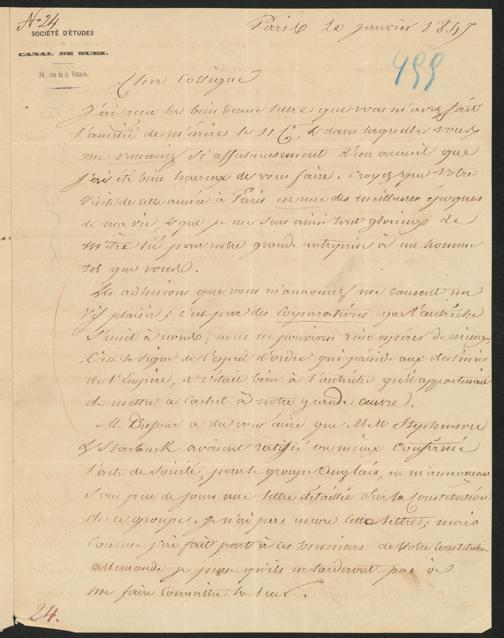 N° 24
SOCIÉTÉ D'ÉTUDES
CANAL DE SUEZ.
34, rue de la Victoire.
Paris le janvier 1847
499
Cher Collègue
J'ai reçu la bien bonne lettre que vous m'avez fait
l'amitié de m'écrire le 11 Ct, & dans laquelle vous
me remerciez si affectueusement d'un accueil que
j'ai été bien heureux de vous faire. Croyez que votre
visite de cette année à Paris est une des meilleures époques
de ma vie, & que je me sens aussi tout glorieux de
m'être lié pour notre grande entreprise à un homme
tel que vous.
Les adhésions que vous m'annoncez me causent un
vif plaisir; c'est par des corporations que l'Autriche
s'unit à nous; nous ne pouvions rien espérer de mieux.
C'est le signe de l'esprit d'ordre qui préside aux destinées
de l'Empire, & c'était bien à l'Autriche qu'il appartenait
de mettre ce cachet à notre grande œuvre.
M. Dufour a dû vous dire que MM Stephenson
& Starbuck avaient ratifié ou mieux confirmé
l'acte de Société, pour le groupe Anglais, en m'annonçant
sous peu de jours une lettre détaillée sur la constitution
de ce groupe. Je n'ai pas encore cette lettre, mais
comme j'ai fait part à ces Messieurs de votre constitution
allemande je pense qu'ils ne tarderont pas à
me faire connaître la leur.
24.